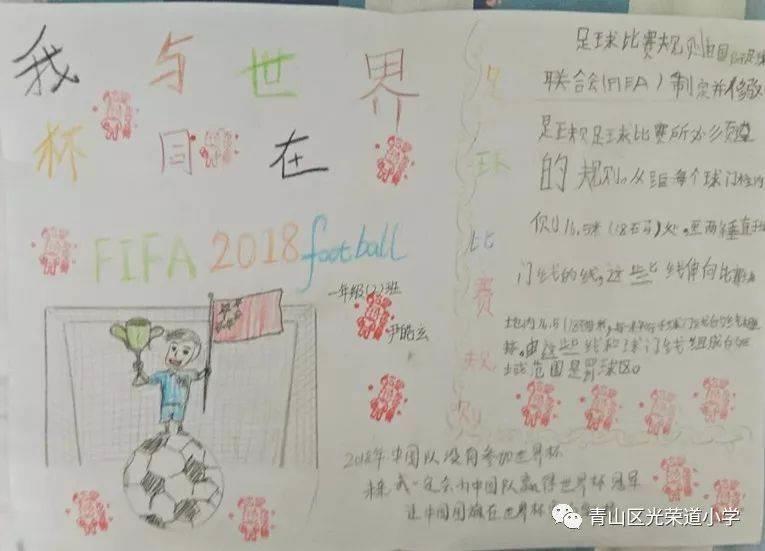 我与世界
杯同在
FIFA 2018 football
一年级(2)班
尹皓玄
足球比赛规则
足球比赛规则由国际足球
联合会(FIFA)制定并修改
是正规足球比赛所必须遵
的规则。从距每个球门柱内
侧16.5米(18码)处,画两条垂直于
门线的线,这些线伸向比赛
地内16.5
接。由这些线和球门线组成的
域范围是罚球区。
2018年中国队没有参加世界杯
未来我一定会为中国队赢得世界杯冠军
让中国国旗在世界杯
青山区光荣道小学